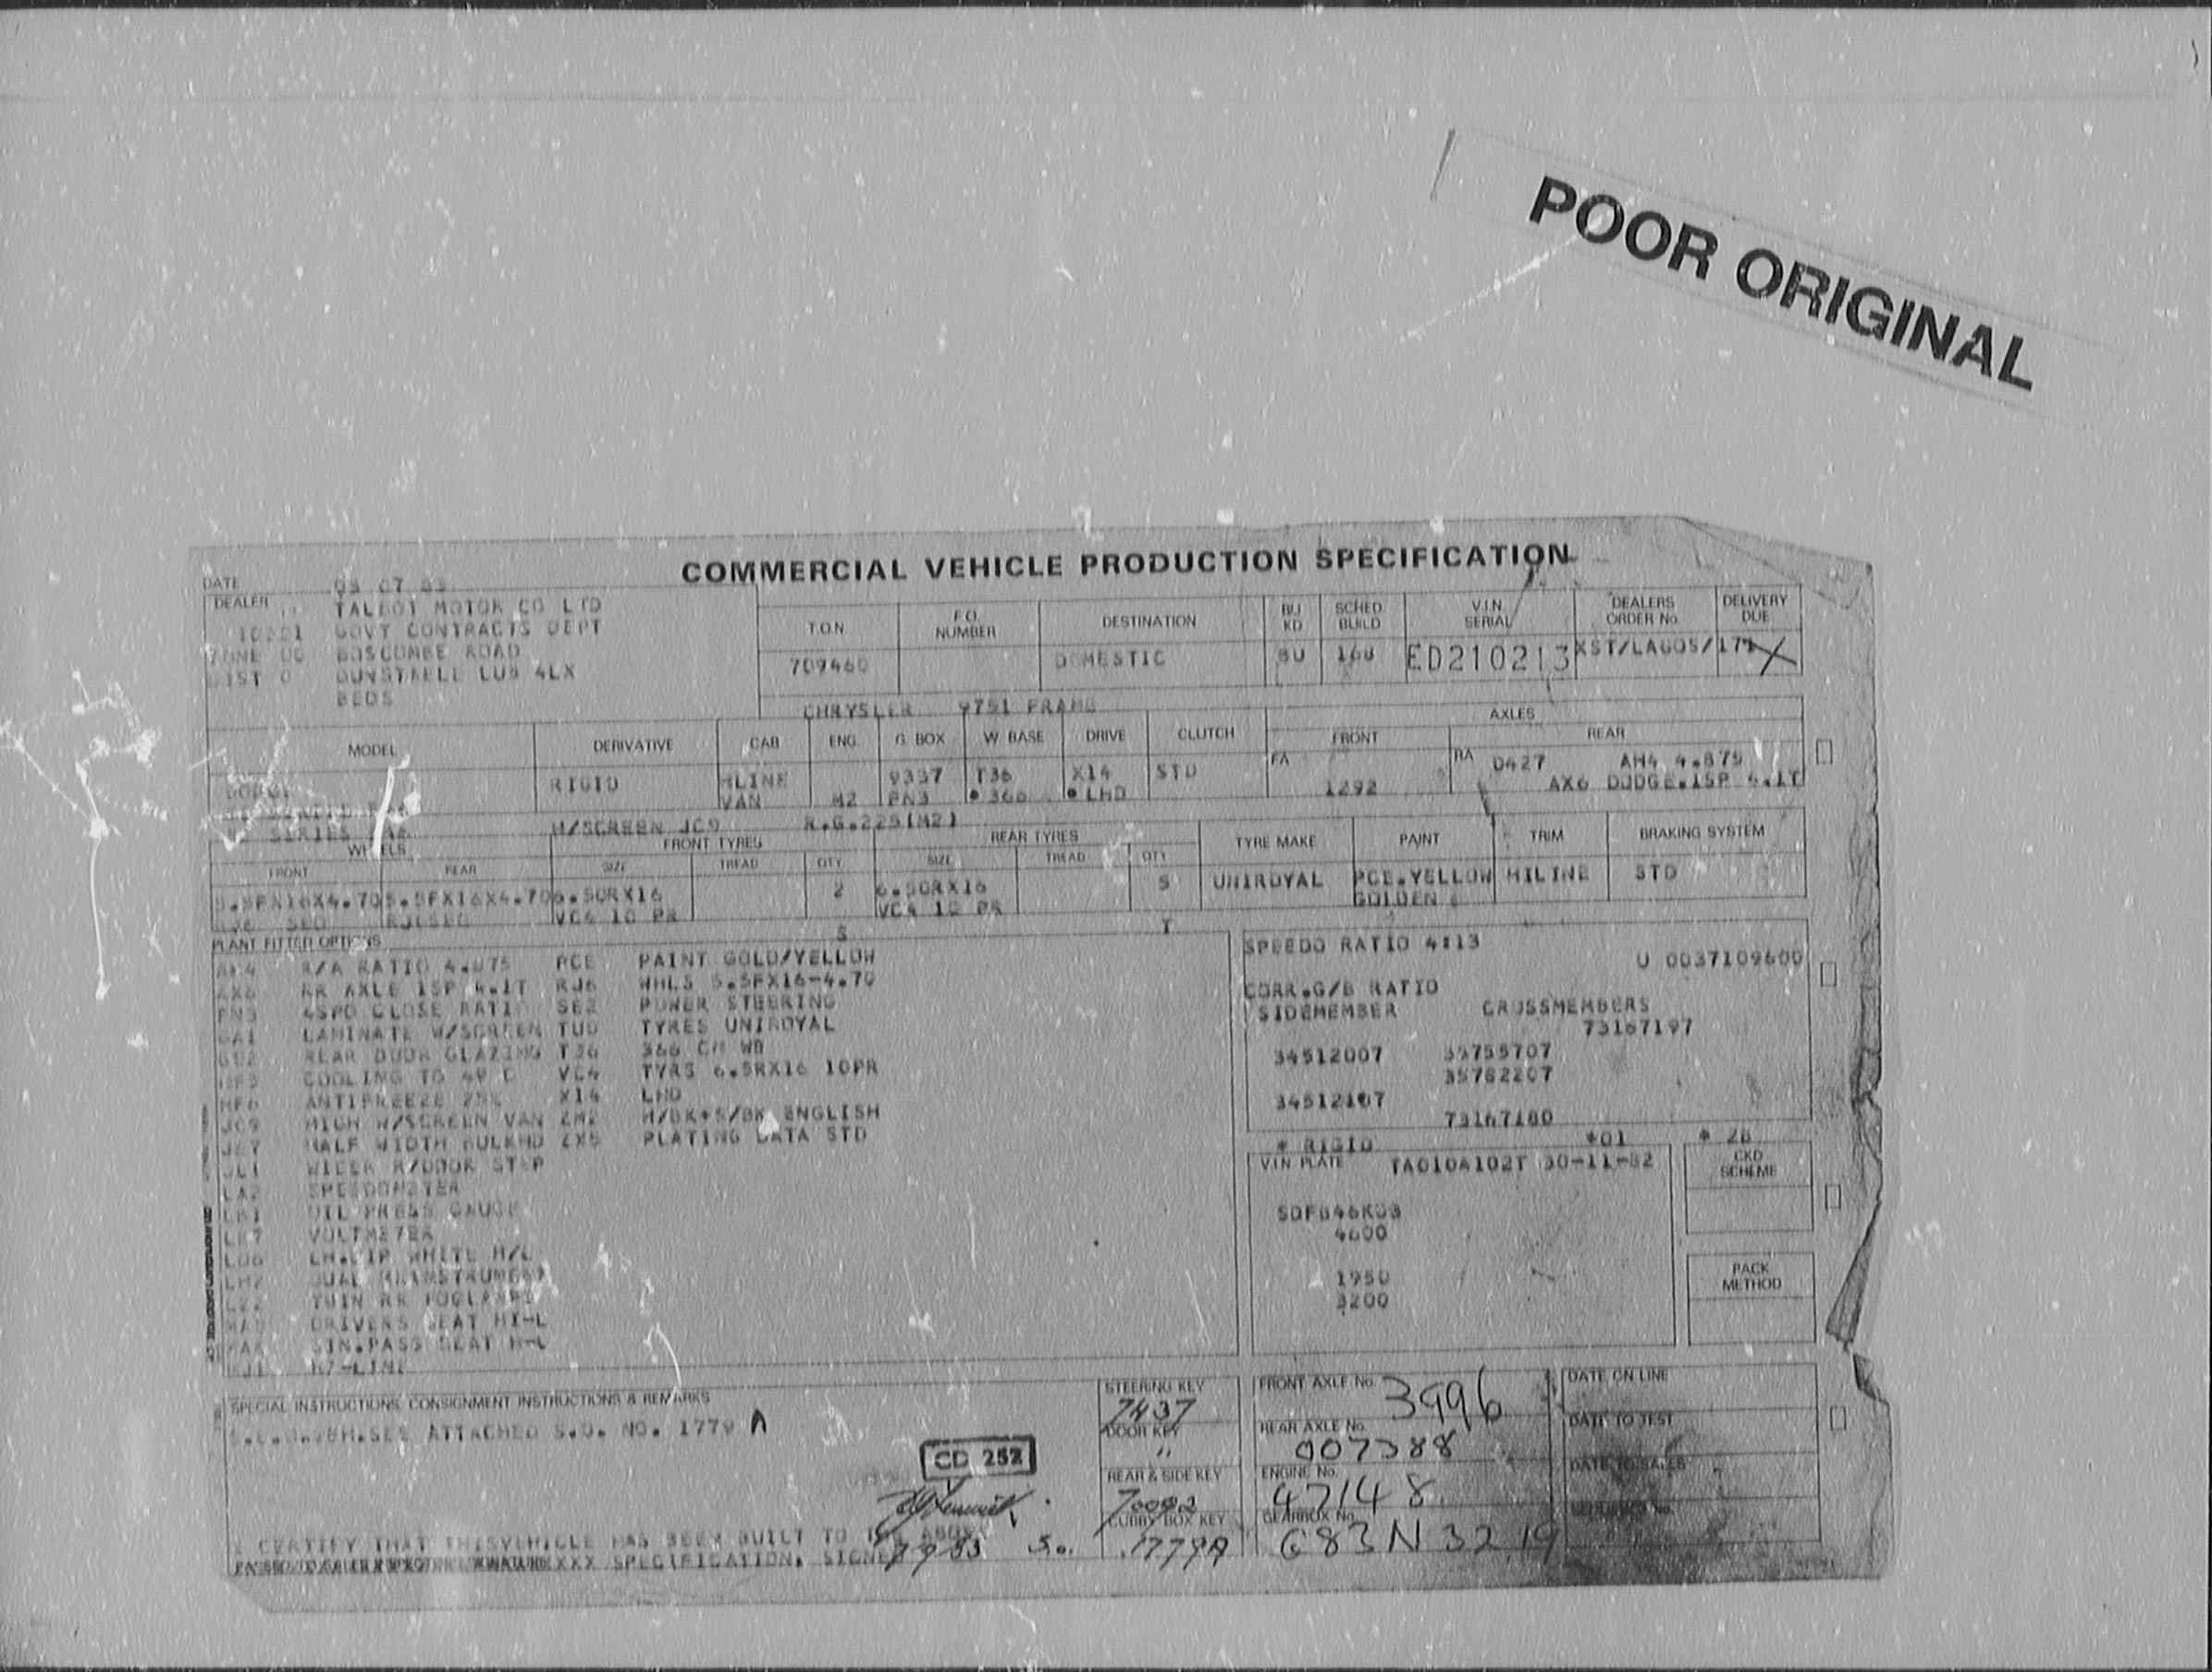 POOR ORIGINAL
COMMERCIAL VEHICLE PRODUCTION SPECIFICATION
DATE 05 07 83
DEALER TALBOT MOTOR CO LTD
GOVT CONTRACTS DEPT
BOSCOMBE ROAD
LU5 4LX
BEDS
T.O.N. F.O. NUMBER DESTINATION BU KD SCHED. BUILD V.I.N. SERIAL DEALERS ORDER No. DELIVERY DUE
709460 DOMESTIC BU 168 ED210213 XST/LAGOS/177
CHRYSLER 9751 FRAME
AXLES
MODEL DERIVATIVE CAB ENG G. BOX W. BASE DRIVE CLUTCH FRONT REAR
RIGID HLINE 9337 T36 X14 STD FA RA D427 AH4 4.875
VAN M2 PN3 • 366 • LHD 1292 AX6 DODGE.1SP 4.1T
SERIES H/SCREEN JC9 R.G.225(M2)
WHEELS FRONT TYRES REAR TYRES TYRE MAKE PAINT TRIM BRAKING SYSTEM
FRONT REAR SIZE TREAD QTY SIZE TREAD QTY
5.5FX16X4.70 5.5FX16X4.70 6.50RX16 2 6.50RX16 5 UNIROYAL PCE.YELLOW HILINE STD
VC4 10 PR VC4 10 PR GOLDEN
S T
PLANT FITTED OPTIONS
AH4 R/A RATIO 4.875 PCE PAINT GOLD/YELLOW
AX6 RR AXLE 1SP 4.1T RJ6 WHLS 5.5FX16-4.70
PN3 4SPD CLOSE RATIO SE2 POWER STEERING
GA1 LAMINATE W/SCREEN TUD TYRES UNIROYAL
GE2 REAR DOOR GLAZING T36 366 CM WB
COOLING TO VC4 TYRS 6.5RX16 10PR
ANTIFREEZE 25% X14 LHD
JC9 HIGH W/SCREEN VAN ZM2 H/BK+S/BK ENGLISH
JE7 HALF WIDTH BULKHD ZX5 PLATING DATA STD
WIDER R/DOOR STEP
SPEEDOMETER
OIL PRESS GAUGE
VOLTMETER
LH.DIP WHITE H/L
TWIN RR FOGLAMPS
DRIVERS SEAT HI-L
SIN.PASS SEAT H-L
HI-LINE
SPEEDO RATIO 4:13
U 0037109600
CORR.G/B RATIO
SIDEMEMBER CROSSMEMBERS
73167197
34512007 35755707
35762207
34512107
73167180
* RIGID *01 * 28
V.I.N PLATE TA010A102T 30-11-82
CKD SCHEME
SDFB46K03
4600
1950
3200
PACK METHOD
SPECIAL INSTRUCTIONS, CONSIGNMENT INSTRUCTIONS & REMARKS
SEE ATTACHED S.O. NO. 1779 A
CD 252
STEERING KEY
7437
DOOR KEY
"
REAR & SIDE KEY
CUBBY BOX KEY
1779A
FRONT AXLE No. 3996
REAR AXLE No.
007388
ENGINE No.
47148
GEARBOX No.
G83N3219
DATE ON LINE
DATE TO TEST
DATE TO SALES
I CERTIFY THAT THISVEHICLE HAS BEEN BUILT TO THE ABOVE
SPECIFICATION. SIGNED 7 9 83 S.o.